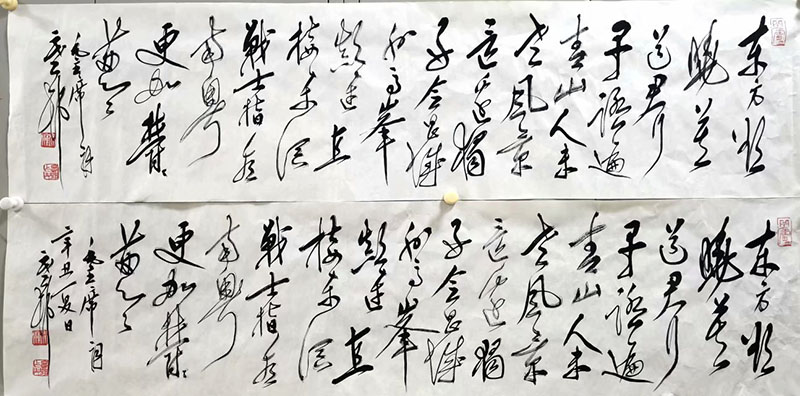 东方欲
晓莫
道君行
早踏遍
青山人未
老风景
这边独
好会昌城
外高峰
颠连直
接东溟
戰士指看
南粤
更加郁々
葱々
毛主席词
东方欲
晓莫
道君行
早踏遍
青山人未
老风景
这边独
好会昌城
外高峰
颠连直
接东溟
戰士指看
南粤
更加郁々
葱々
毛主席词
辛丑夏日